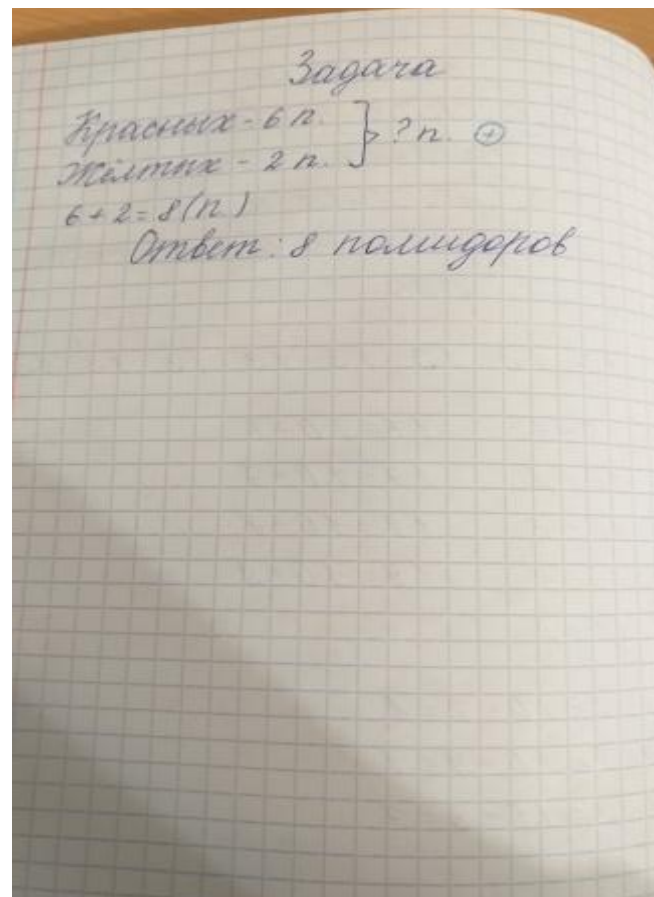 Задача
Красных - 6 п. } ? п. (+)
Жёлтых - 2 п.
6 + 2 = 8 (п.)
Ответ: 8 помидоров